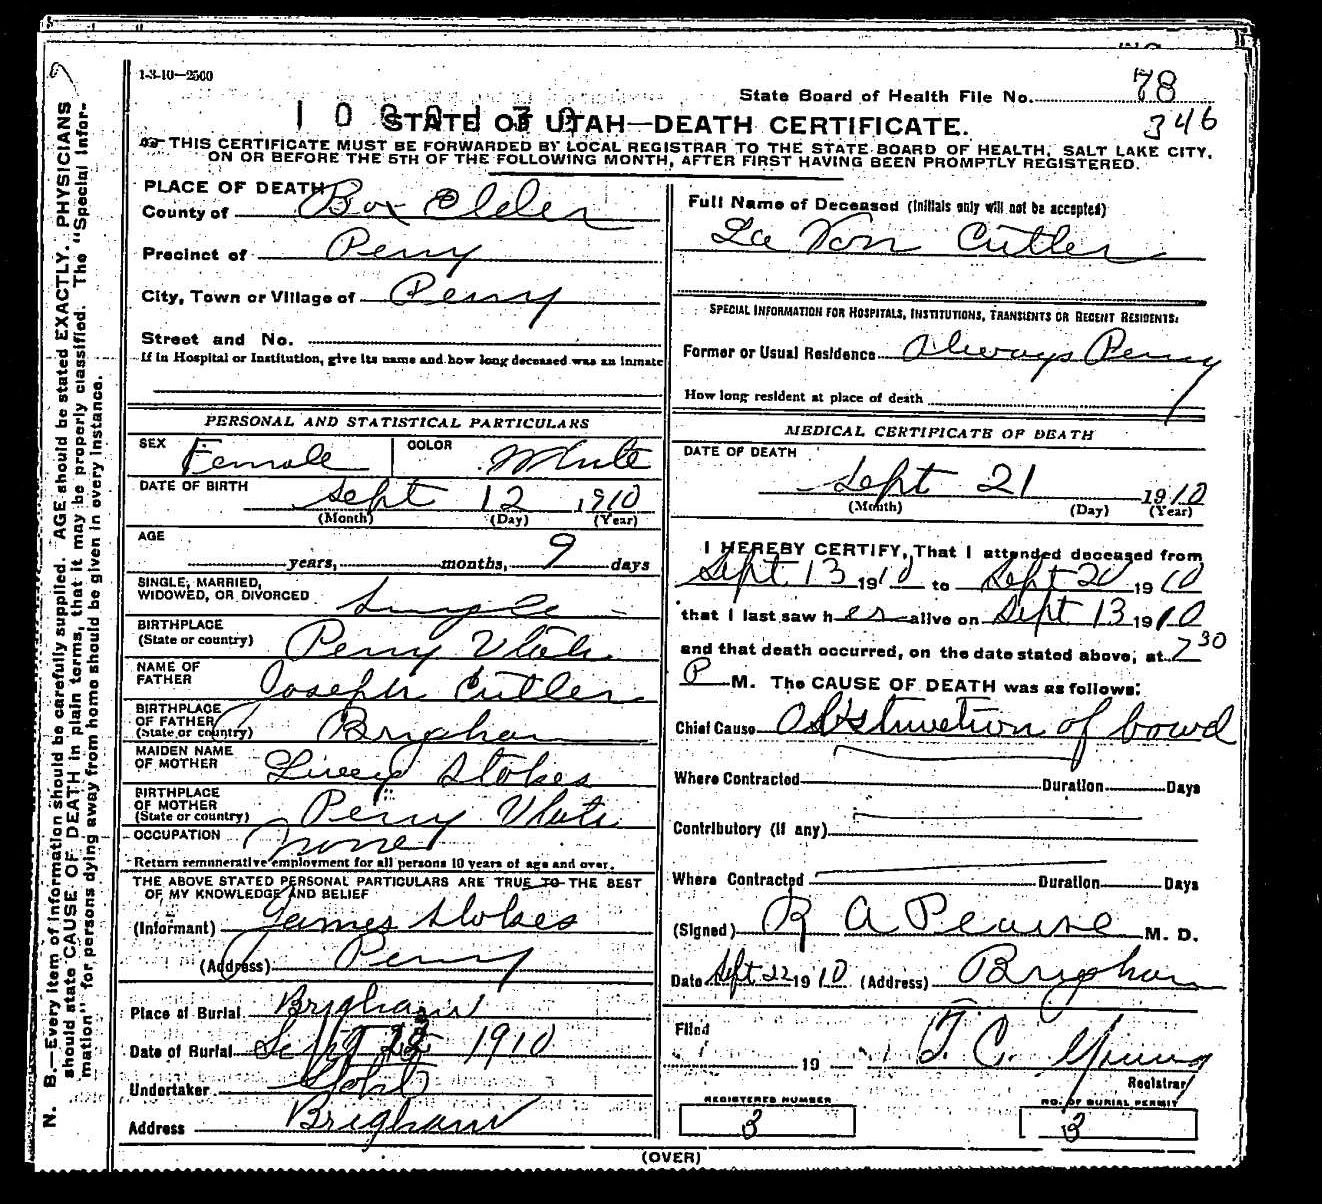 1-3-10—2500
State Board of Health File No. 78
346
STATE OF UTAH—DEATH CERTIFICATE.
THIS CERTIFICATE MUST BE FORWARDED BY LOCAL REGISTRAR TO THE STATE BOARD OF HEALTH, SALT LAKE CITY,
ON OR BEFORE THE 5TH OF THE FOLLOWING MONTH, AFTER FIRST HAVING BEEN PROMPTLY REGISTERED.
N. B.—Every item of information should be carefully supplied. AGE should be stated EXACTLY. PHYSICIANS
should state CAUSE OF DEATH in plain terms, that it may be properly classified. The "Special Infor-
mation" for persons dying away from home should be given in every instance.
PLACE OF DEATH
County of Box Elder
Precinct of Perry
City, Town or Village of Perry
Street and No.
If in Hospital or Institution, give its name and how long deceased was an inmate
PERSONAL AND STATISTICAL PARTICULARS
SEX Female COLOR White
DATE OF BIRTH Sept 12 1910
(Month) (Day) (Year)
AGE
years, months, 9 days
SINGLE, MARRIED,
WIDOWED, OR DIVORCED Single
BIRTHPLACE
(State or country) Perry Utah
NAME OF
FATHER Joseph Cutler
BIRTHPLACE
OF FATHER
(State or country) Brigham
MAIDEN NAME
OF MOTHER Stokes
BIRTHPLACE
OF MOTHER
(State or country) Perry Utah
OCCUPATION None
Return remunerative employment for all persons 10 years of age and over.
THE ABOVE STATED PERSONAL PARTICULARS ARE TRUE TO THE BEST
OF MY KNOWLEDGE AND BELIEF
(Informant) James Stokes
(Address) Perry
Place of Burial Brigham
Date of Burial Sept 1910
Undertaker
Address Brigham
Full Name of Deceased (Initials only will not be accepted)
La Von Cutler
SPECIAL INFORMATION FOR HOSPITALS, INSTITUTIONS, TRANSIENTS OR RECENT RESIDENTS:
Former or Usual Residence Always Perry
How long resident at place of death
MEDICAL CERTIFICATE OF DEATH
DATE OF DEATH
Sept 21 1910
(Month) (Day) (Year)
I HEREBY CERTIFY, That I attended deceased from
Sept 13 1910 to Sept 20 1910
that I last saw her alive on Sept 13 1910
and that death occurred, on the date stated above, at 7 30
P M. The CAUSE OF DEATH was as follows:
Chief Cause Obstruction of bowel
Where Contracted Duration Days
Contributory (if any)
Where Contracted Duration Days
(Signed) R A Pearse M. D.
Date Sept 22 1910 (Address) Brigham
Filed
19 T. C. Young
Registrar
REGISTERED NUMBER
3
NO. OF BURIAL PERMIT
3
(OVER)